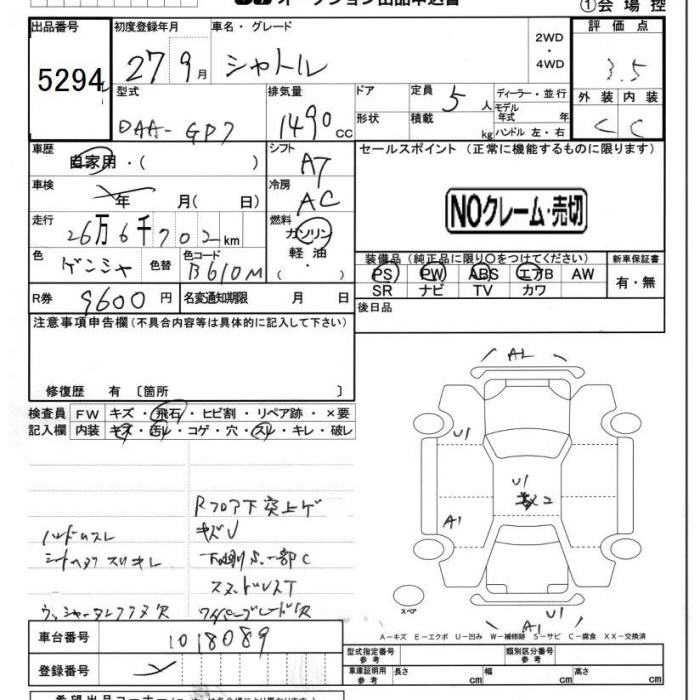 ①会場控
出品番号
5294
初度登録年月
27 9月
車名・グレード
シャトル
2WD
・
4WD
評価点
3.5
外装 内装
C C
型式
DAA-GP7
排気量
1490 CC
ドア
形状
定員 5 人
積載 kg
ディーラー・並行
モデル年式 年
ハンドル 左・右
車歴
自家用・( )
シフト
AT
セールスポイント (正常に機能するものに限ります)
車検
年 月( 日)
冷房
AC
NOクレーム・売切
走行
26万6千702km
燃料
ガソリン
軽油
( ・ )
色
ゲンシャ
色替
色コード
B610M
装備品 (純正品に限り○をつけてください)
PS PW ABS エアB AW
SR ナビ TV カワ
新車保証書
有・無
R券 9600円
名変通知期限 月 日
後日品
注意事項申告欄(不具合内容等は具体的に記入して下さい)
修復歴 有 〔箇所 〕
検査員 FW キズ・飛石・ヒビ割・リペア跡・×要
記入欄 内装 キズ・汚レ・コゲ・穴・スレ・キレ・破レ
Rフロア下突上ゲ
キズU
ハンドルスレ
シートヘタリスリキレ
下廻りS.一部C
スタッドレスT
A2
U1
U1
A1
U1
A1
スペア
A-キズ E-エクボ U-凹み W-補修跡 S-サビ C-腐食 XX-交換済
車台番号
1018089
登録番号
型式指定番号
参考
類別区分番号
参考
車庫証明用
参考
長さ cm 幅 cm 高さ cm